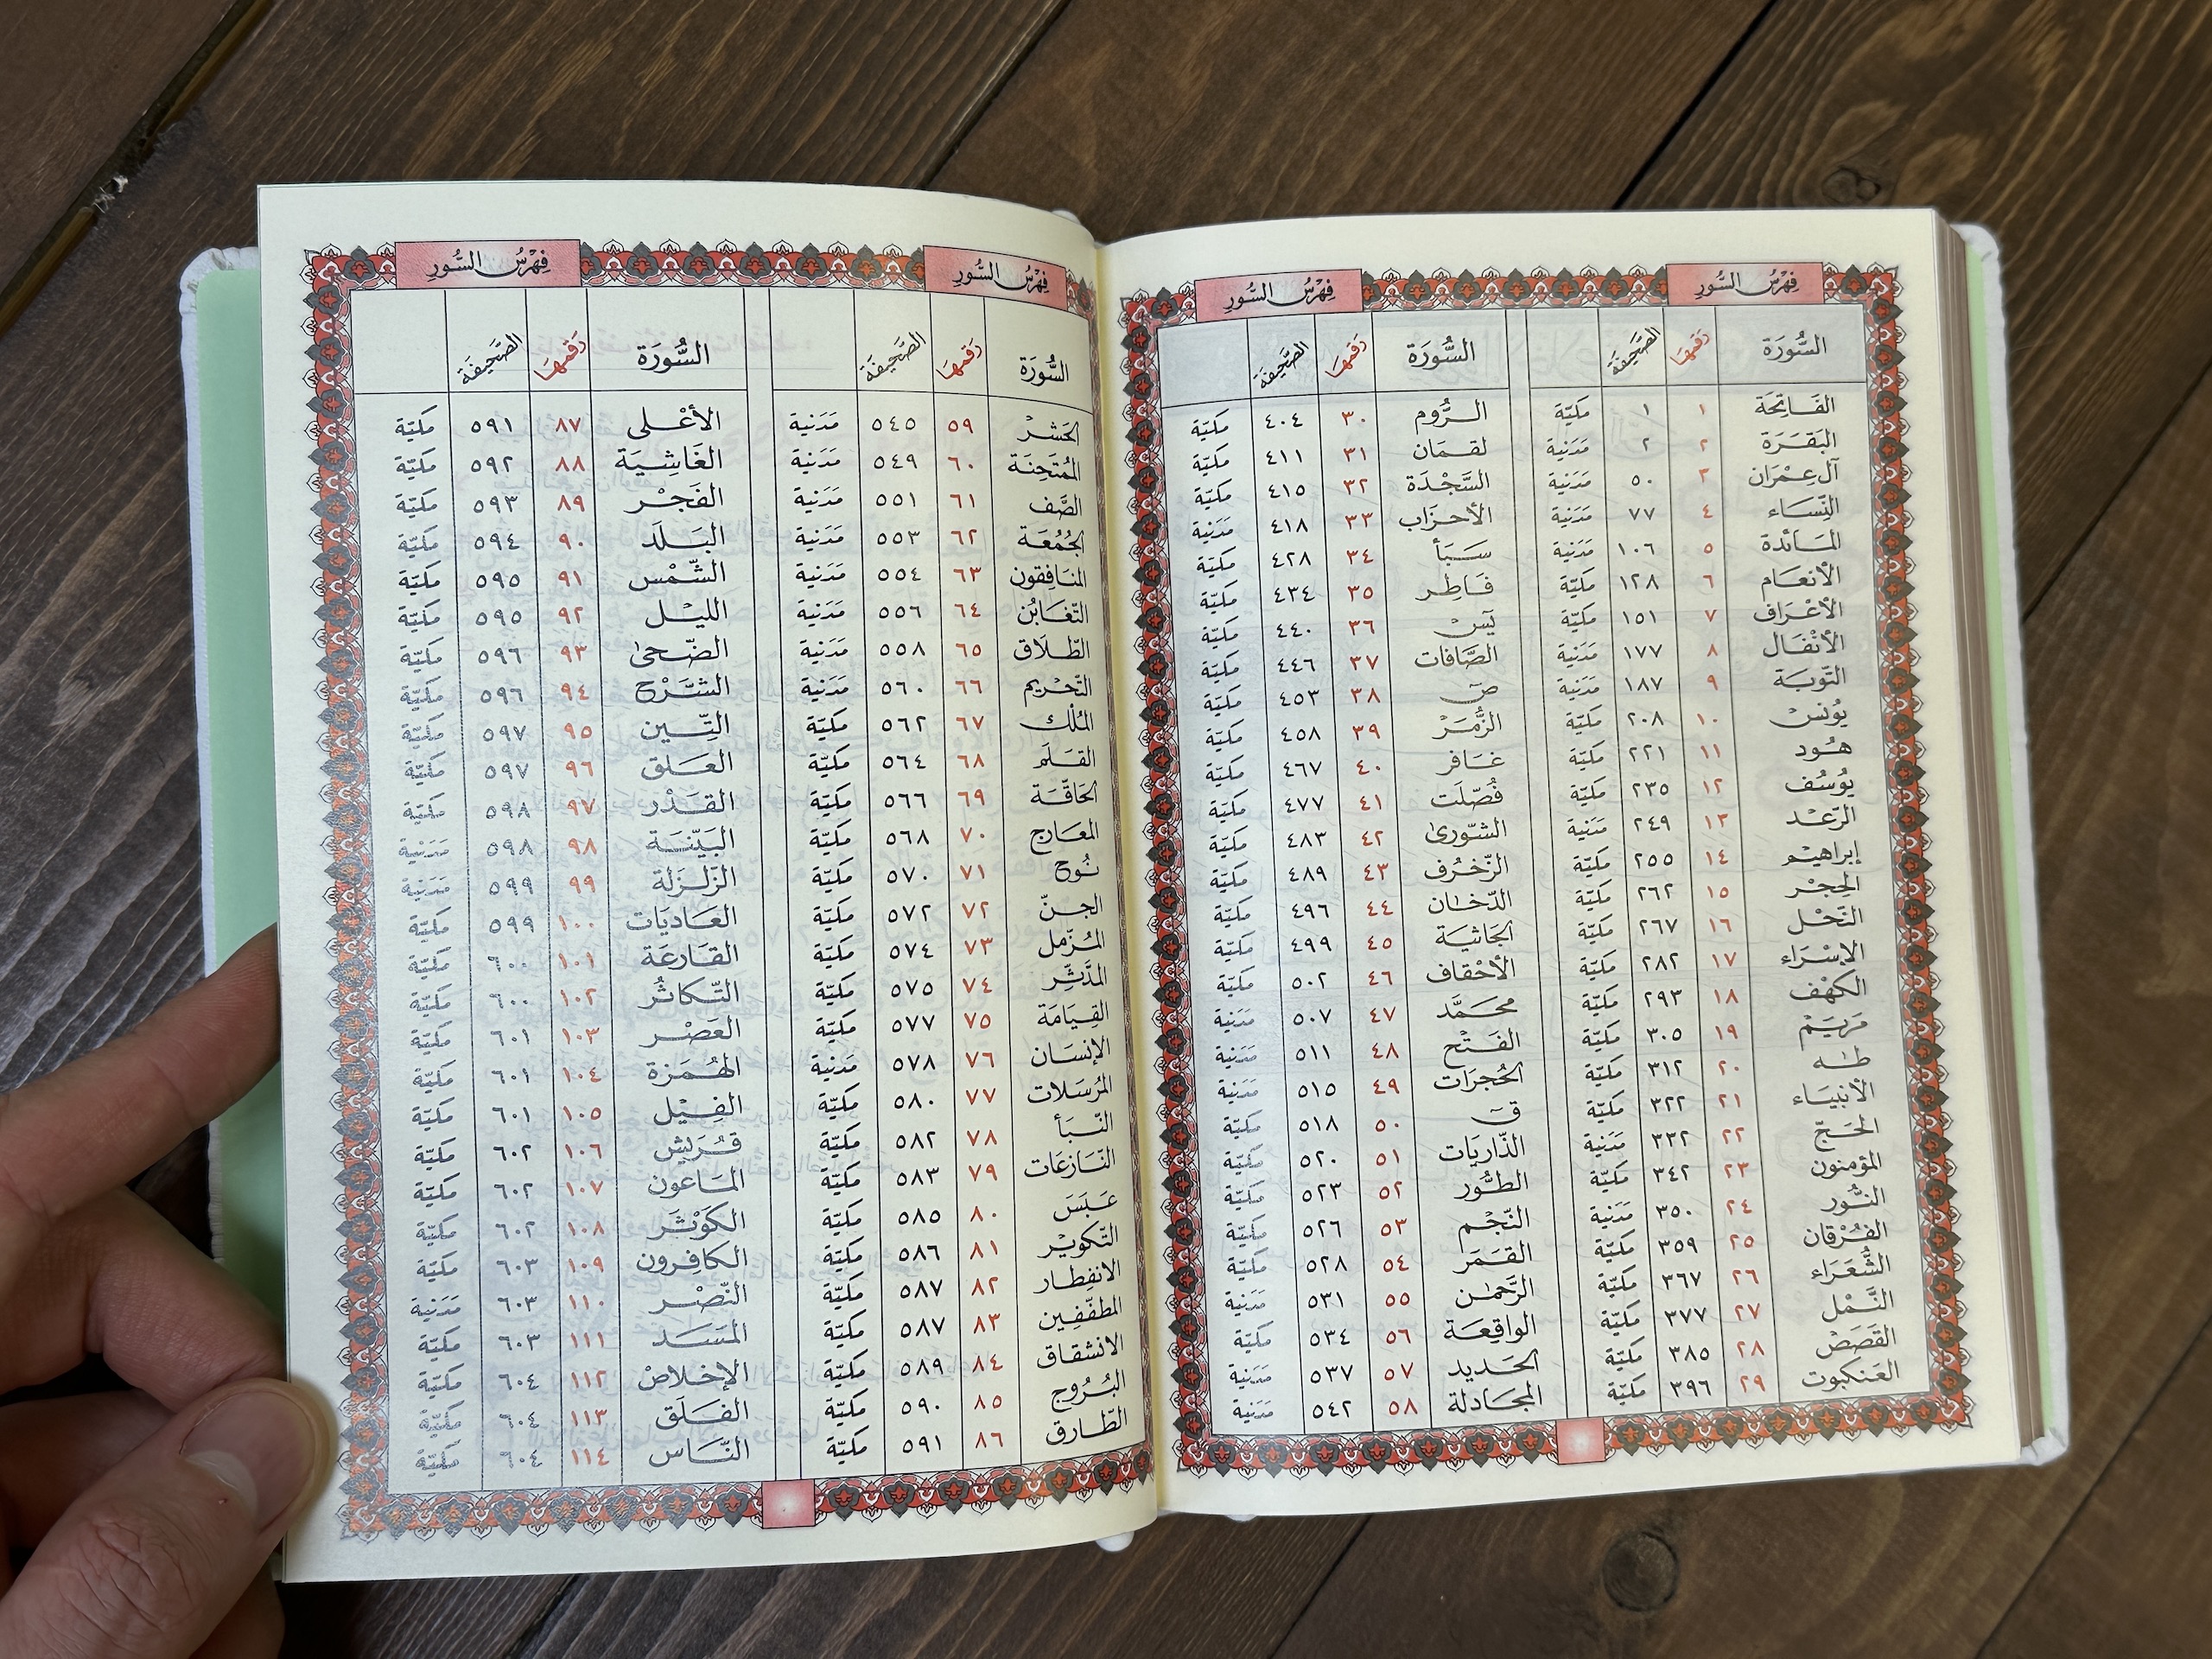 فِهْرِسُ السُّوَرِ
السُّورَة رَقمهَا الصَّحِيفَة
الفَاتِحَة ١ ١ مكيّة
البَقَرَة ٢ ٢ مَدَنية
آل عِمْرَان ٣ ٥٠ مَدَنية
النِّسَاء ٤ ٧٧ مَدَنية
المَائدة ٥ ١٠٦ مَدَنية
الأنعَام ٦ ١٢٨ مكيّة
الأعْرَاف ٧ ١٥١ مكيّة
الأنْفَال ٨ ١٧٧ مَدَنية
التّوبَة ٩ ١٨٧ مَدَنية
يُونس ١٠ ٢٠٨ مكيّة
هُود ١١ ٢٢١ مكيّة
يُوسُف ١٢ ٢٣٥ مكيّة
الرّعْد ١٣ ٢٤٩ مَدَنية
إبراهيم ١٤ ٢٥٥ مكيّة
الحِجْر ١٥ ٢٦٢ مكيّة
النّحْل ١٦ ٢٦٧ مكيّة
الإسْرَاء ١٧ ٢٨٢ مكيّة
الكهْف ١٨ ٢٩٣ مكيّة
مَريَم ١٩ ٣٠٥ مكيّة
طـٰه ٢٠ ٣١٢ مكيّة
الأنبيَاء ٢١ ٣٢٢ مكيّة
الحَجّ ٢٢ ٣٣٢ مَدَنية
المؤمنون ٢٣ ٣٤٢ مكيّة
النُّور ٢٤ ٣٥٠ مَدَنية
الفُرْقان ٢٥ ٣٥٩ مكيّة
الشُّعَرَاء ٢٦ ٣٦٧ مكيّة
النَّمْل ٢٧ ٣٧٧ مكيّة
القَصَصْ ٢٨ ٣٨٥ مكيّة
العَنكبوت ٢٩ ٣٩٦ مكيّة
فِهْرِسُ السُّوَرِ
السُّورَة رَقمهَا الصَّحِيفَة
الرُّوم ٣٠ ٤٠٤ مكيّة
لقمَان ٣١ ٤١١ مكيّة
السَّجْدَة ٣٢ ٤١٥ مكيّة
الأحزَاب ٣٣ ٤١٨ مَدَنية
سَبَأ ٣٤ ٤٢٨ مكيّة
فَاطِر ٣٥ ٤٣٤ مكيّة
يسٓ ٣٦ ٤٤٠ مكيّة
الصَّافات ٣٧ ٤٤٦ مكيّة
صٓ ٣٨ ٤٥٣ مكيّة
الزُّمَرْ ٣٩ ٤٥٨ مكيّة
غَافر ٤٠ ٤٦٧ مكيّة
فُصّلَت ٤١ ٤٧٧ مكيّة
الشّورىٰ ٤٢ ٤٨٣ مكيّة
الزّخرُف ٤٣ ٤٨٩ مكيّة
الدّخَان ٤٤ ٤٩٦ مكيّة
الجَاثيَة ٤٥ ٤٩٩ مكيّة
الأحْقاف ٤٦ ٥٠٢ مكيّة
محمَّد ٤٧ ٥٠٧ مَدَنية
الفَتْح ٤٨ ٥١١ مَدَنية
الحُجرَات ٤٩ ٥١٥ مَدَنية
قٓ ٥٠ ٥١٨ مكيّة
الذّاريَات ٥١ ٥٢٠ مكيّة
الطُّور ٥٢ ٥٢٣ مكيّة
النّجْم ٥٣ ٥٢٦ مكيّة
القَمَر ٥٤ ٥٢٨ مكيّة
الرَّحمٰن ٥٥ ٥٣١ مَدَنية
الواقِعَة ٥٦ ٥٣٤ مكيّة
الحَديد ٥٧ ٥٣٧ مَدَنية
المجَادلة ٥٨ ٥٤٢ مَدَنية
فِهْرِسُ السُّوَرِ
السُّورَة رَقمهَا الصَّحِيفَة
الحَشرْ ٥٩ ٥٤٥ مَدَنية
المُمْتَحِنَة ٦٠ ٥٤٩ مَدَنية
الصَّف ٦١ ٥٥١ مَدَنية
الجُمُعَة ٦٢ ٥٥٣ مَدَنية
المنَافِقون ٦٣ ٥٥٤ مَدَنية
التّغَابُن ٦٤ ٥٥٦ مَدَنية
الطّلَاق ٦٥ ٥٥٨ مَدَنية
التّحْريم ٦٦ ٥٦٠ مَدَنية
المُلْك ٦٧ ٥٦٢ مكيّة
القَلَم ٦٨ ٥٦٤ مكيّة
الحَاقّة ٦٩ ٥٦٦ مكيّة
المعَارج ٧٠ ٥٦٨ مكيّة
نُوح ٧١ ٥٧٠ مكيّة
الجنّ ٧٢ ٥٧٢ مكيّة
المُزّمل ٧٣ ٥٧٤ مكيّة
المدَّثِّر ٧٤ ٥٧٥ مكيّة
القِيَامَة ٧٥ ٥٧٧ مكيّة
الإنسَان ٧٦ ٥٧٨ مَدَنية
المُرسَلات ٧٧ ٥٨٠ مكيّة
النّبَأ ٧٨ ٥٨٢ مكيّة
النّازعَات ٧٩ ٥٨٣ مكيّة
عَبَسَ ٨٠ ٥٨٥ مكيّة
التّكويْر ٨١ ٥٨٦ مكيّة
الانفِطار ٨٢ ٥٨٧ مكيّة
المطفّفِين ٨٣ ٥٨٧ مكيّة
الانشقاق ٨٤ ٥٨٩ مكيّة
البُرُوج ٨٥ ٥٩٠ مكيّة
الطّارق ٨٦ ٥٩١ مكيّة
فِهْرِسُ السُّوَرِ
السُّورَة رَقمهَا الصَّحِيفَة
الأعْلى ٨٧ ٥٩١ مكيّة
الغَاشِيَة ٨٨ ٥٩٢ مكيّة
الفَجْر ٨٩ ٥٩٣ مكيّة
البَلَد ٩٠ ٥٩٤ مكيّة
الشّمْس ٩١ ٥٩٥ مكيّة
الليْل ٩٢ ٥٩٥ مكيّة
الضّحىٰ ٩٣ ٥٩٦ مكيّة
الشَّرْح ٩٤ ٥٩٦ مكيّة
التِّين ٩٥ ٥٩٧ مكيّة
العَلق ٩٦ ٥٩٧ مكيّة
القَدْر ٩٧ ٥٩٨ مكيّة
البَيّنَة ٩٨ ٥٩٨ مَدَنية
الزّلزَلة ٩٩ ٥٩٩ مَدَنية
العَاديَات ١٠٠ ٥٩٩ مكيّة
القَارعَة ١٠١ ٦٠٠ مكيّة
التّكاثُر ١٠٢ ٦٠٠ مكيّة
العَصْر ١٠٣ ٦٠١ مكيّة
الهُمَزة ١٠٤ ٦٠١ مكيّة
الفِيْل ١٠٥ ٦٠١ مكيّة
قُرَيش ١٠٦ ٦٠٢ مكيّة
المَاعون ١٠٧ ٦٠٢ مكيّة
الكَوْثَر ١٠٨ ٦٠٢ مكيّة
الكافِرون ١٠٩ ٦٠٣ مكيّة
النّصْر ١١٠ ٦٠٣ مَدَنية
المسَد ١١١ ٦٠٣ مكيّة
الإخلاصْ ١١٢ ٦٠٤ مكيّة
الفَلَق ١١٣ ٦٠٤ مكيّة
النّاس ١١٤ ٦٠٤ مكيّة